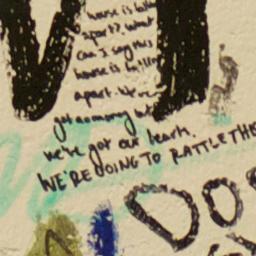 house is fallin
apart? What
can I say this
house is fallin
apart. We've
got no money but
we've got our hearts.
WE'RE GOING TO RATTLE THE
DO